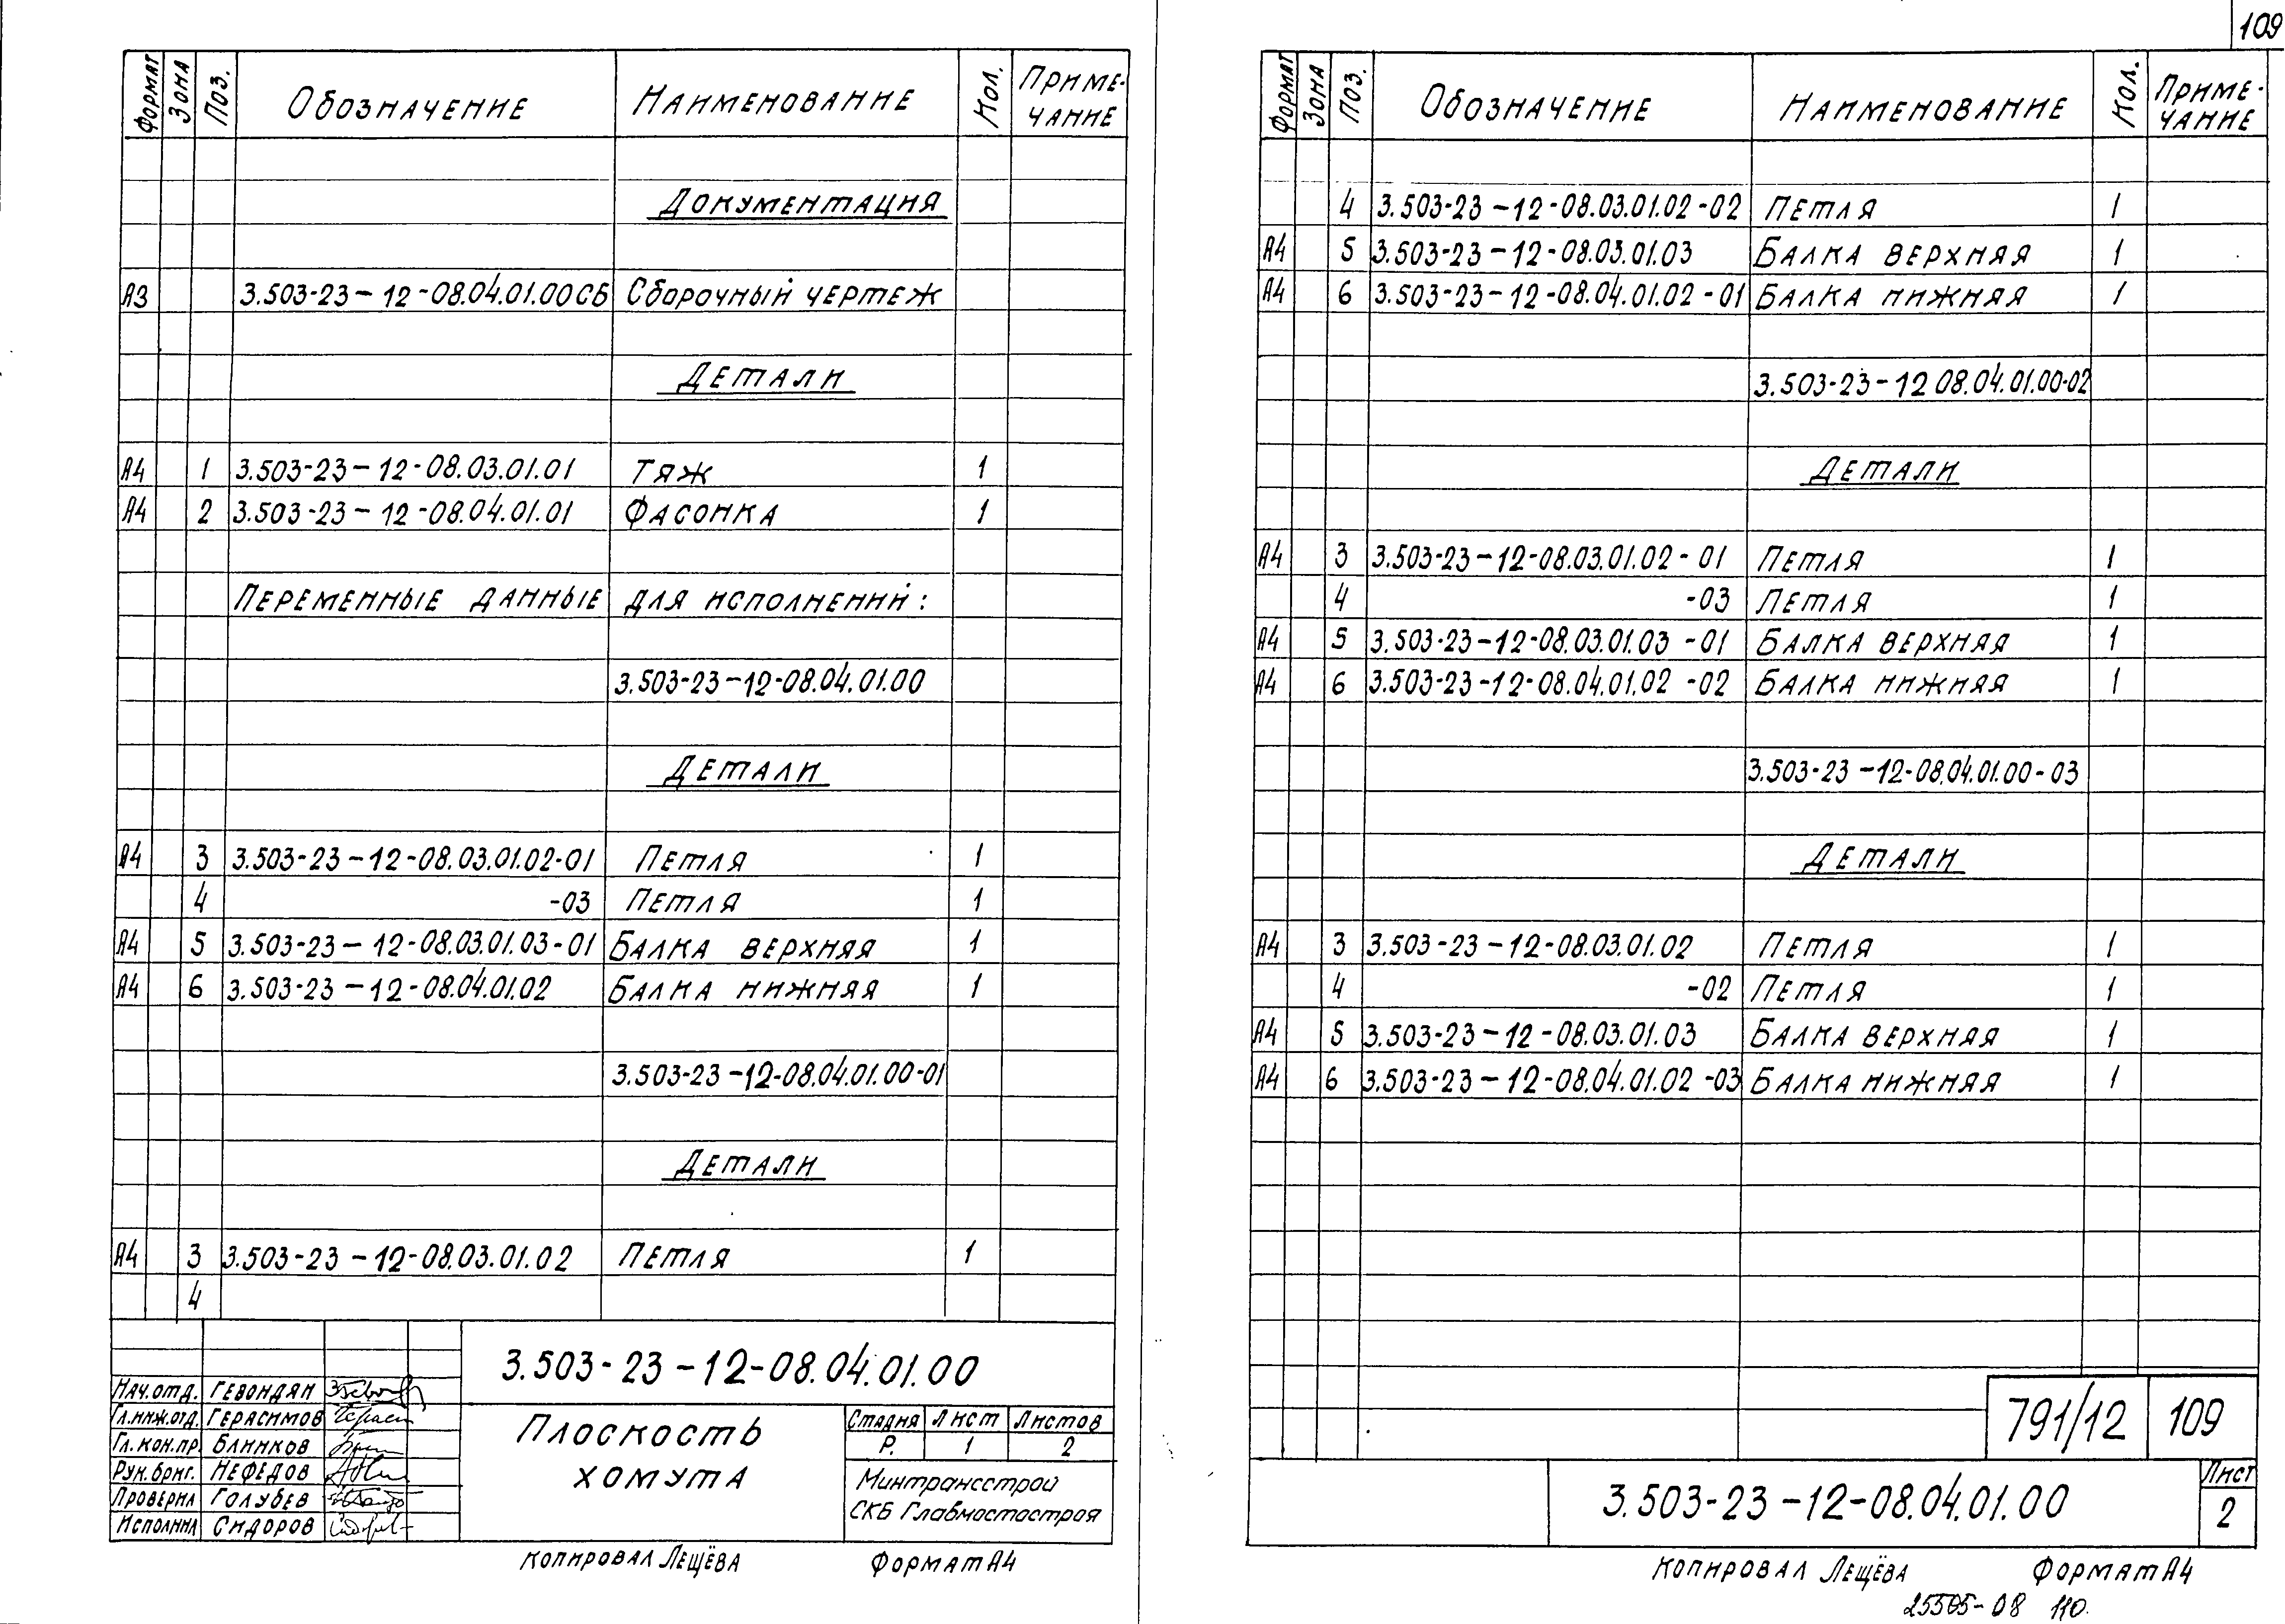 109
Формат Зона Поз. Обозначение Наименование Кол. Приме-
чание
Документация
А3 3.503-23-12-08.04.01.00СБ Сборочный чертеж
Детали
А4 1 3.503-23-12-08.03.01.01 Тяж 1
А4 2 3.503-23-12-08.04.01.01 Фасонка 1
Переменные данные для исполнений:
3.503-23-12-08.04.01.00
Детали
А4 3 3.503-23-12-08.03.01.02-01 Петля 1
4 -03 Петля 1
А4 5 3.503-23-12-08.03.01.03-01 Балка верхняя 1
А4 6 3.503-23-12-08.04.01.02 Балка нижняя 1
3.503-23-12-08.04.01.00-01
Детали
А4 3 3.503-23-12-08.03.01.02 Петля 1
4
3.503-23-12-08.04.01.00
Нач.отд. Гевондян
Гл.инж.отд. Герасимов
Гл.кон.пр. Блинков
Рук.бриг. Нефедов
Проверил Голубев
Исполнил Сидоров
Плоскость
хомута
Стадия Лист Листов
Р. 1 2
Минтрансстрой
СКБ Главмостостроя
Копировал Лещёва Формат А4
Формат Зона Поз. Обозначение Наименование Кол. Приме-
чание
4 3.503-23-12-08.03.01.02-02 Петля 1
А4 5 3.503-23-12-08.03.01.03 Балка верхняя 1
А4 6 3.503-23-12-08.04.01.02-01 Балка нижняя 1
3.503-23-12 08.04.01.00-02
Детали
А4 3 3.503-23-12-08.03.01.02-01 Петля 1
4 -03 Петля 1
А4 5 3.503-23-12-08.03.01.03-01 Балка верхняя 1
А4 6 3.503-23-12-08.04.01.02-02 Балка нижняя 1
3.503-23-12-08.04.01.00-03
Детали
А4 3 3.503-23-12-08.03.01.02 Петля 1
4 -02 Петля 1
А4 5 3.503-23-12-08.03.01.03 Балка верхняя 1
А4 6 3.503-23-12-08.04.01.02-03 Балка нижняя 1
791/12 109
3.503-23-12-08.04.01.00
Лист
2
Копировал Лещёва Формат А4
25505-08 110